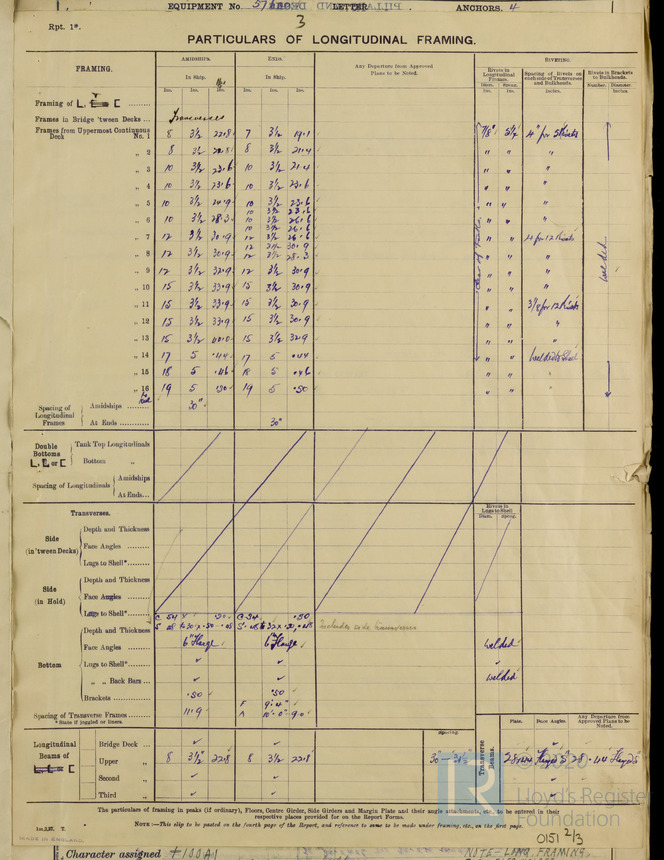 EQUIPMENT No. LETTER ANCHORS. 4
3
Rpt. 1*.
PARTICULARS OF LONGITUDINAL FRAMING.
FRAMING. AMIDSHIPS. ENDS. Any Departure from Approved Plans to be Noted. RIVETING.
In Ship. In Ship. Rivets in Longitudinal Frames. Spacing of Rivets on each side of Transverses and Bulkheads. Rivets in Brackets to Bulkheads.
Ins. Ins. Ins. Ins. Ins. Ins. Diam. Spcng. Inches. Number. Diameter.
Ins. Ins. Inches.
Framing of L, C .........
Frames in Bridge 'tween Decks ... Transverses
Frames from Uppermost Continuous Deck No. 1 8 3½ 22.8 7 3½ 19.1 7/8" 5¼ 4" for 5 Rivets
„ 2 8 3½ 22.8 8 3½ 21.4 " " "
„ 3 10 3½ 23.6 10 3½ 21.4 " " "
„ 4 10 3½ 23.6 10 3½ 23.6 " " "
„ 5 10 3½ 24.9 10 3½ 23.6 " " "
10 3½ 23.6
„ 6 10 3½ 28.3 10 3½ 26.6 " "
10 3½ 26.6
„ 7 12 3½ 30.9 12 3½ 26.6 " " 4 for 12 Rivets
12 3½ 30.9
„ 8 12 3½ 30.9 12 3½ 28.3 " " "
welded
„ 9 12 3½ 32.9 12 3½ 30.9 " " "
„ 10 15 3½ 33.9 15 3½ 30.9 " " "
„ 11 15 3½ 33.9 15 3½ 30.9 " " 3⅞ for 12 Rivets
„ 12 15 3½ 33.9 15 3½ 30.9 " " "
„ 13 15 3½ 40.0 15 3½ 32.9 " " "
„ 14 17 5 .44 17 5 .44 " " welded to Shell
„ 15 18 5 .46 18 5 .46 " " "
„ 16 19 5 .50 19 5 .50 " " "
Spacing of Longitudinal Frames
Amidships ......... 30"
At Ends ............ 30"
Double Bottoms L, C or C
Tank Top Longitudinals
Bottom „
Spacing of Longitudinals
Amidships
At Ends...
Transverses. Rivets in Lugs to Shell
Diam. Spcng.
Side (in 'tween Decks)
Depth and Thickness
Face Angles .........
Lugs to Shell* .........
Side (in Hold)
Depth and Thickness
Face Angles .........
Lugs to Shell* .........
Includes side transverses
Bottom
Depth and Thickness
Face Angles ......... 6" Flange 6" Flange welded
Lugs to Shell* ......... ✓ ✓ ✓
„ „ Back Bars ... ✓ ✓ welded
Brackets ............ .50 .50
Spacing of Transverse Frames ......... 11.9
*State if joggled or liners.
Spacing. Transverse Beams. Plate. Face Angles. Any Departure from Approved Plans to be Noted.
Longitudinal Beams of C
Bridge Deck ... ✓ ✓
Upper „ 8 3½" 22.8 8 3½ 22.8
Second „ ✓ ✓ ✓
Third „ ✓ ✓ ✓
The particulars of framing in peaks (if ordinary), Floors, Centre Girder, Side Girders and Margin Plate and their angle attachments, etc., to be entered in their
respective places provided for on the Report Forms.
NOTE:—This slip to be posted on the fourth page of the Report, and reference to same to be made under framing, etc., on the first page.
MADE IN ENGLAND
© 2020
Lloyd's Register
Foundation
0151 2/3
Character assigned +100A1 NOTE - LONG. FRAMING.